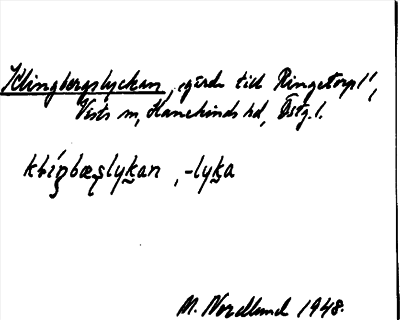 Klingbergslyckan, gärde till Ringetorp 1¹,
Vists sn, Hanekinds hd, Östg. l.
klíŋbæșlykan, -lyka
M. Nordlund 1948.